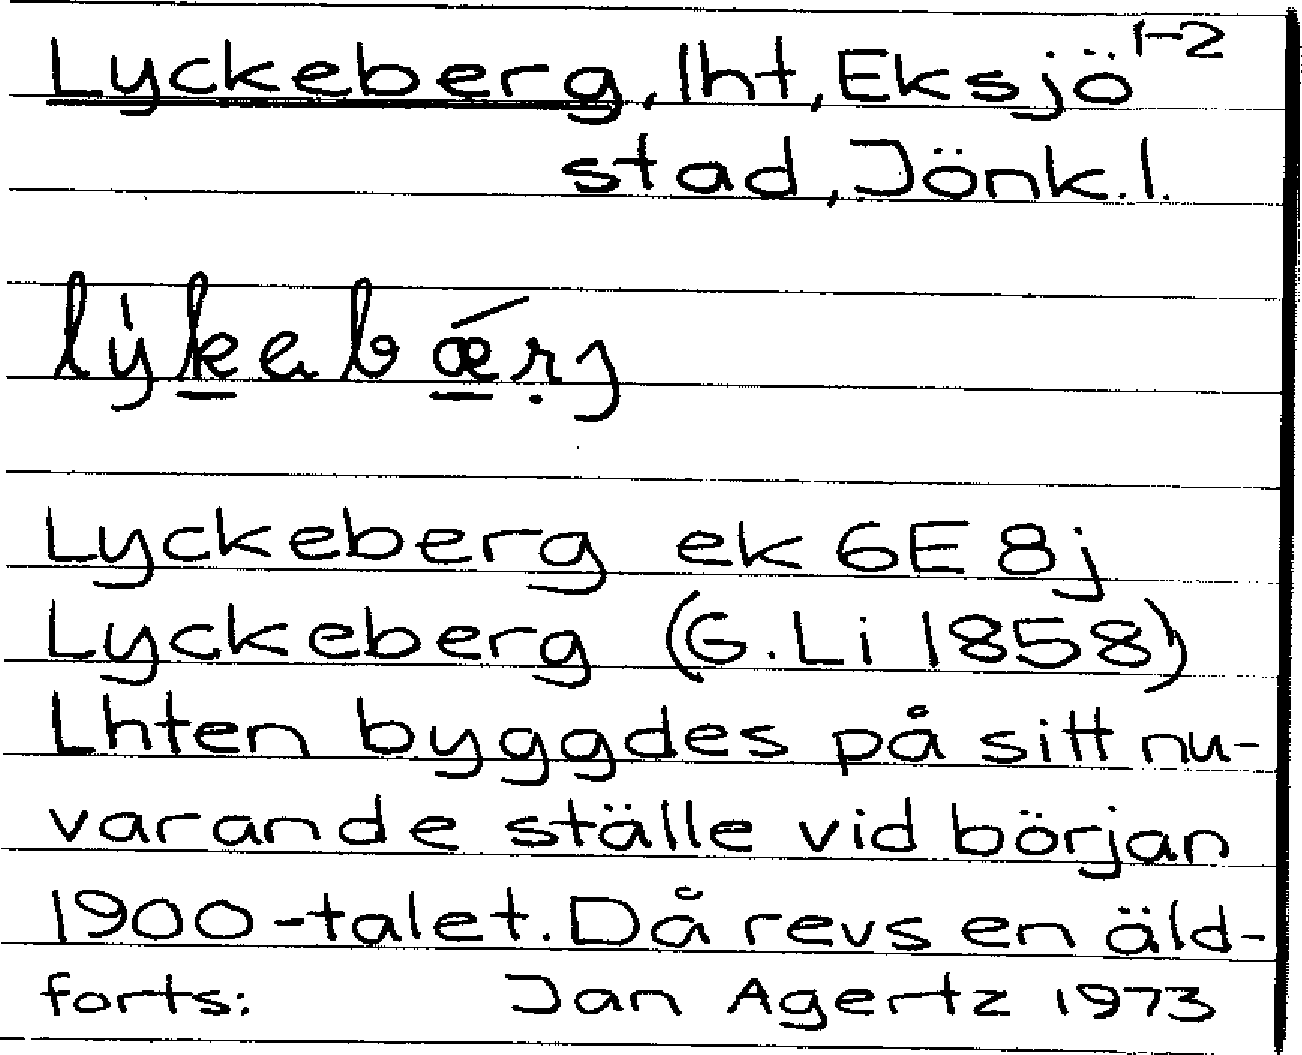 Lyckeberg, lht, Eksjö 1-2
stad, Jönk.l.
Lyckeberg ek 6E 8j
Lyckeberg (G.Li 1858)
Lhten byggdes på sitt nu-
varande ställe vid början
1900-talet. Då revs en äld-
forts: Jan Agertz 1973